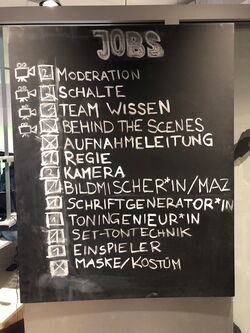 JOBS
2 MODERATION
2 SCHALTE
TEAM WISSEN
BEHIND THE SCENES
AUFNAHMELEITUNG
1 REGIE
2 KAMERA
BILDMISCHER*IN/MAZ
SCHRIFTGENERATOR*IN
1 TONINGENIEUR*IN
1 SET-TONTECHNIK
1 EINSPIELER
MASKE/KOSTÜM